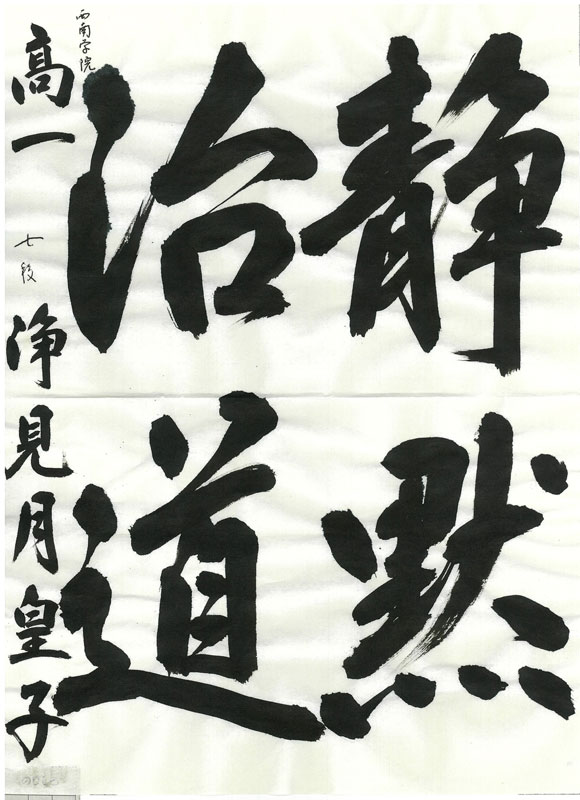 静默
治道
西南学院
高一 七段 浄見月皇子